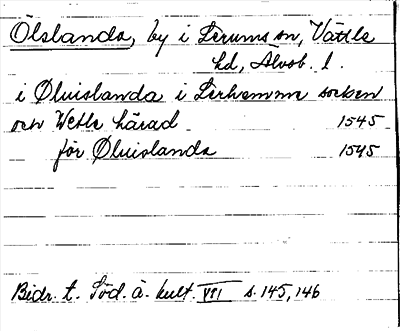 Ölslanda, by i Lerums sn, Vättle
hd, Älvsb. l.
i Øluislanda i Lerhemme socken
och Wetle härad 1545
för Øluislanda 1545
Bidr. t. Söd. Ä. kult. VII s. 145, 146